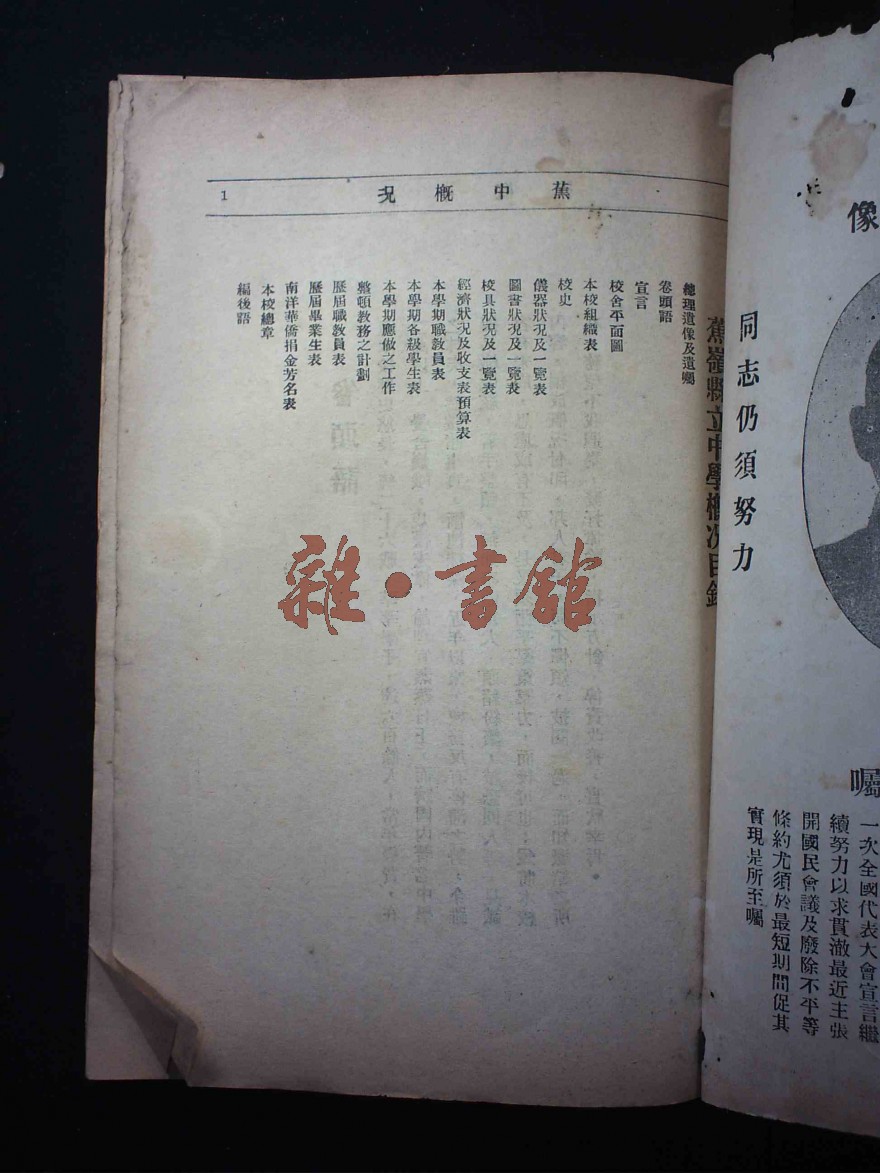 像
同志仍須努力
囑
一次全國代表大會宣言繼
續努力以求貫澈最近主張
開國民會議及廢除不平等
條約尤須於最短期間促其
實現是所至囑
蕉中概況
1
蕉嶺縣立中學概況目錄
總理遺像及遺囑
卷頭語
宣言
校舍平面圖
本校組織表
校史
儀器狀況及一覽表
圖書狀況及一覽表
校具狀況及一覽表
經濟狀況及收支表預算表
本學期職教員表
本學期各級學生表
本學期應做之工作
整頓教務之計劃
歷屆職教員表
歷屆畢業生表
南洋華僑捐金芳名表
本校總章
編後語
雜·書館